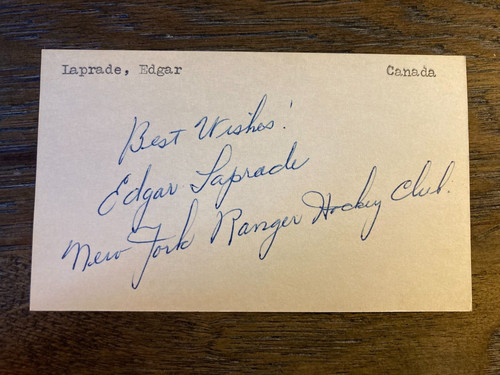 Laprade, Edgar Canada
Best Wishes!
Edgar Laprade
New York Ranger Hockey Club.